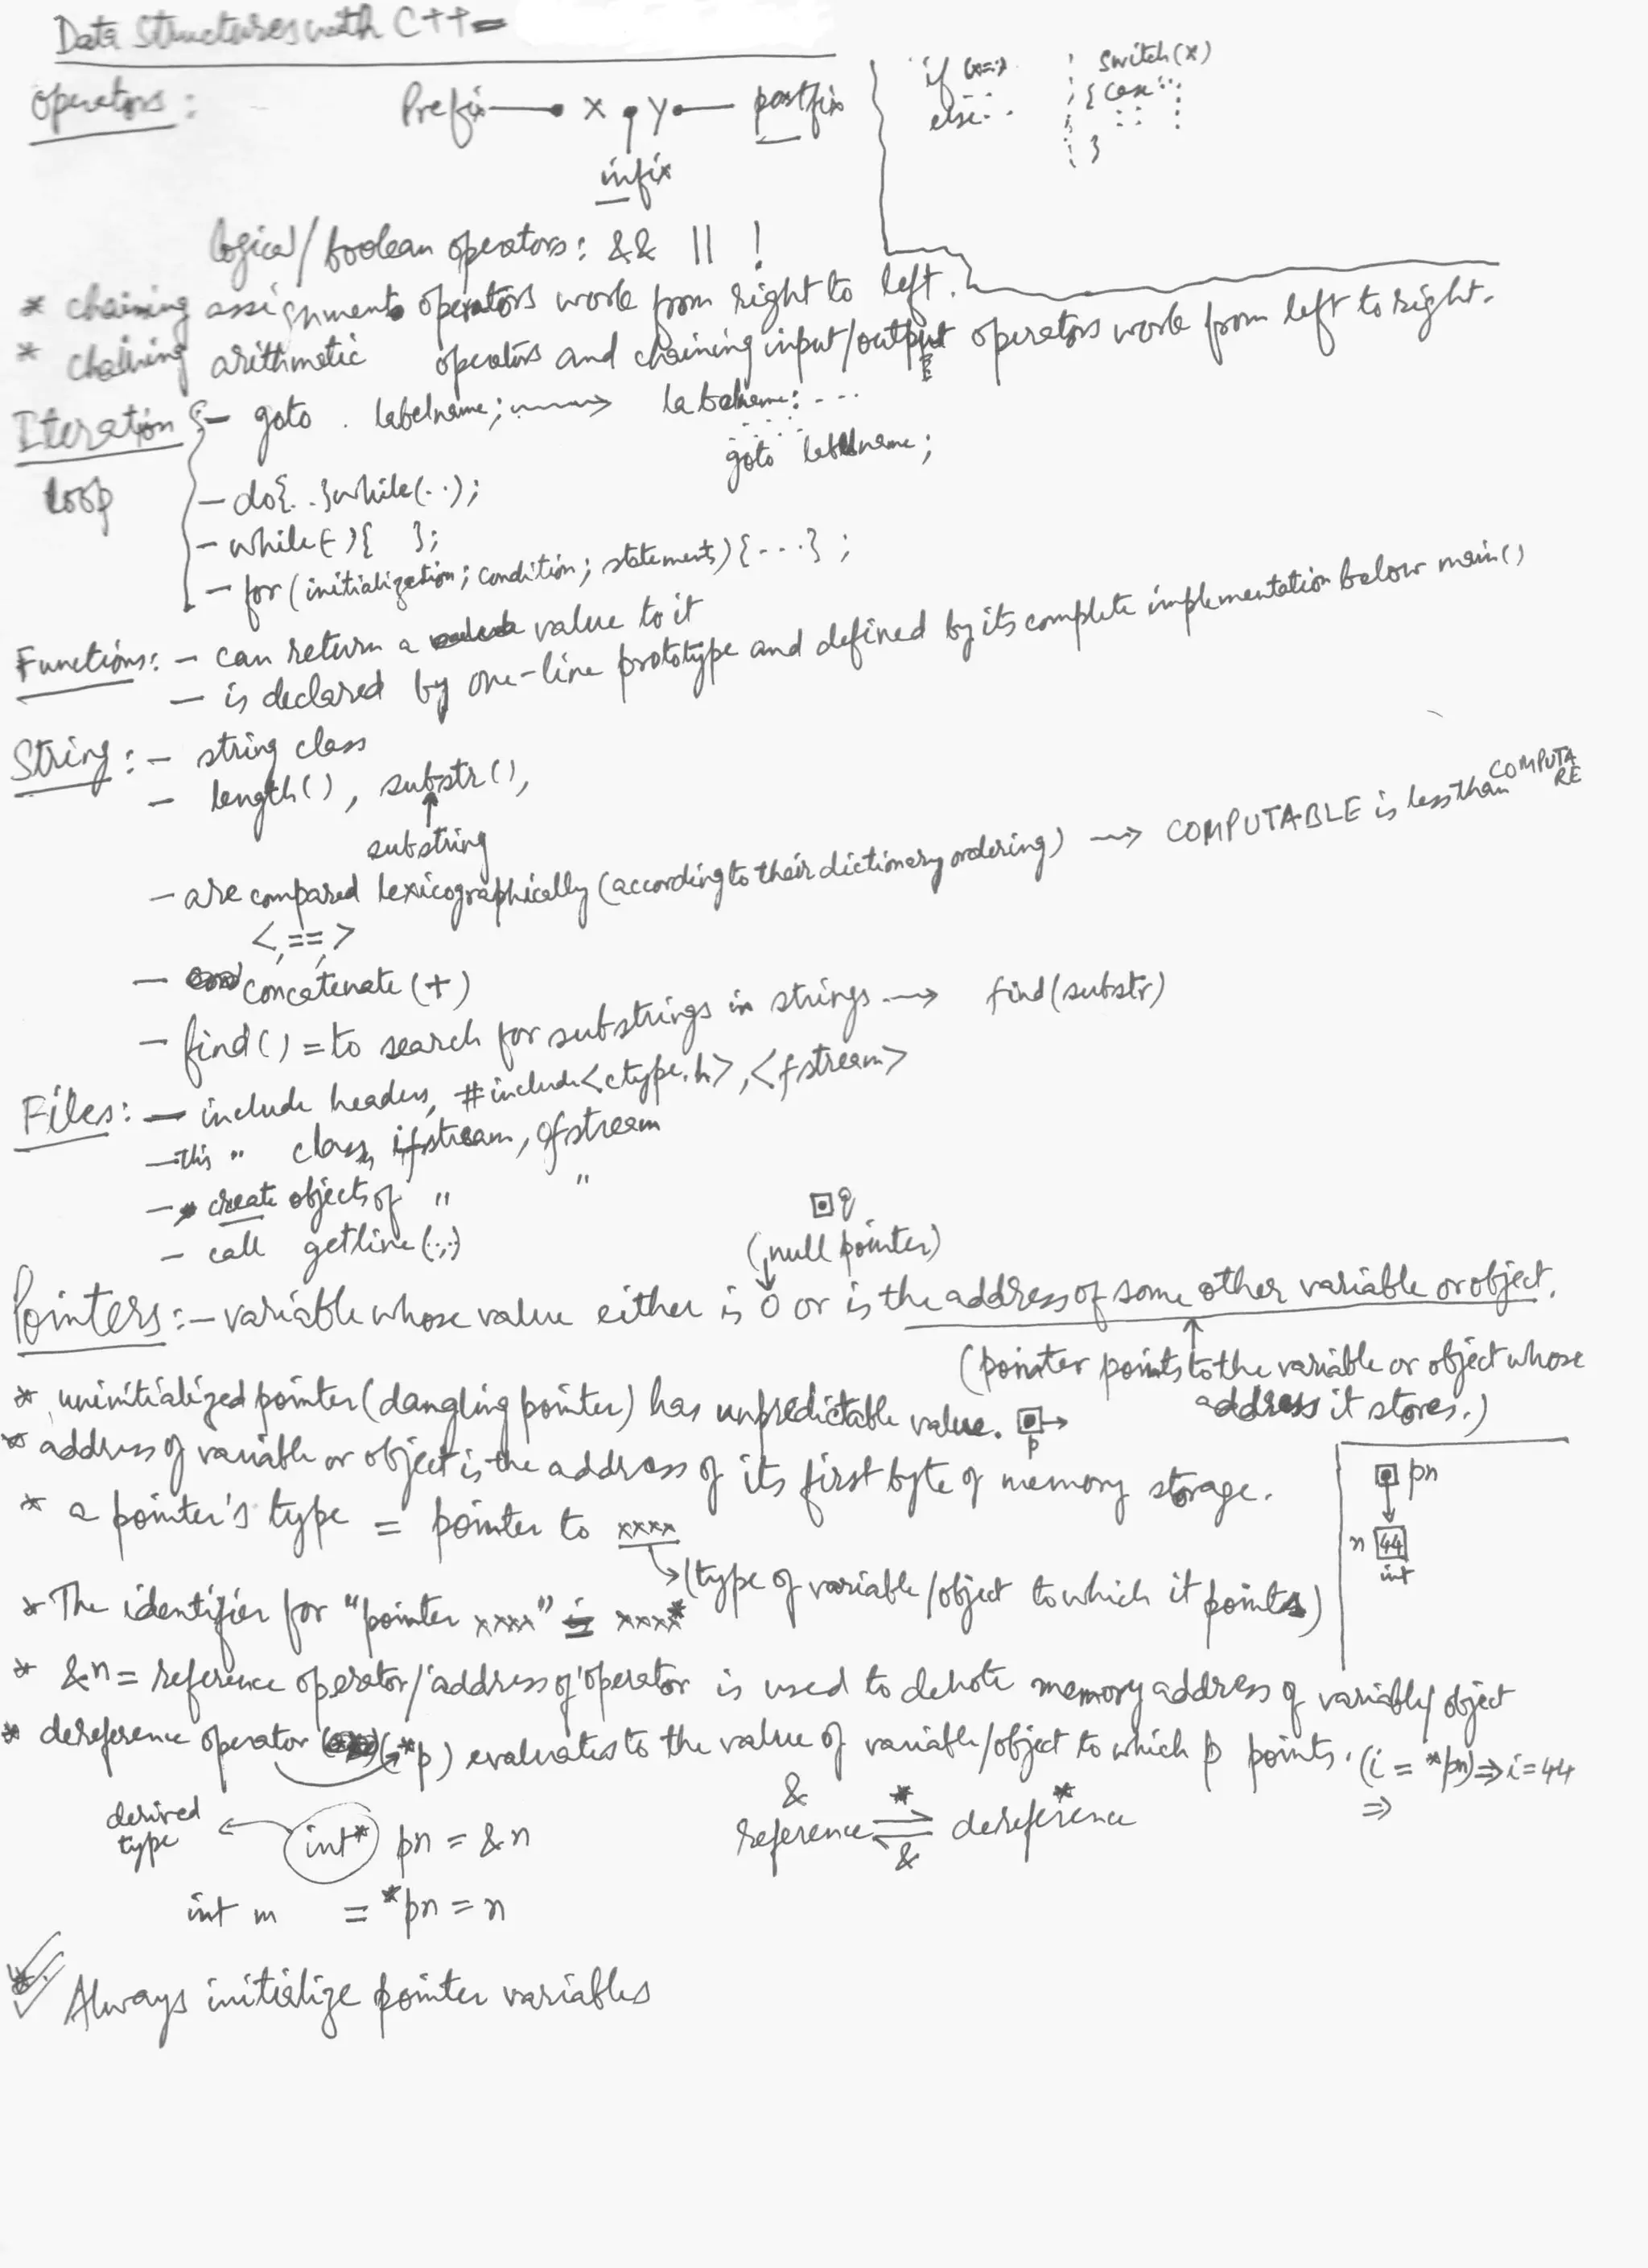 Data Structures with C++ =
operators: Prefix X Y postfix
infix
if (x==)
else..
switch(x)
{ case :
}
logical/boolean operators: && || !
* chaining assignment operators work from right to left.
* chaining arithmetic operators and chaining input/output operators work from left to right.
Iteration
loop
- goto labelname; → labelname: ...
goto labelname;
- do{..}while(..);
- while(-){ };
- for(initialization; condition; statements){---};
Functions: - can return a value to it
- is declared by one-line prototype and defined by its complete implementation below main()
String: - string class
- length(), substr(),
substring
- are compared lexicographically (according to their dictionary ordering) → COMPUTABLE is less than COMPUTARE
<, ==, >
- concatenate (+)
- find() = to search for substrings in strings → find(substr)
Files: - include headers, #include<ctype.h>, <fstream>
- this " class, ifstream, ofstream
- create objects of " "
- call getline(..,.)
q
(null pointer)
Pointers: - variable whose value either is 0 or is the address of some other variable or object.
(pointer points to the variable or object whose
address it stores.)
* uninitialized pointer (dangling pointer) has unpredictable value.
p
* address of variable or object is the address of its first byte of memory storage.
pn
n 44
int
* a pointer's type = pointer to xxxx
(type of variable/object to which it points)
* The identifier for "pointer xxxx" is xxxx*
* &n = reference operator/'address of' operator is used to denote memory address of variable/object
* dereference operator (*p) evaluates to the value of variable/object to which p points. (i = *pn) ⇒ i = 44
⇒
derived
type
int* pn = &n
& * *
reference ⇌ dereference
&
int m = *pn = n
* Always initialize pointer variables